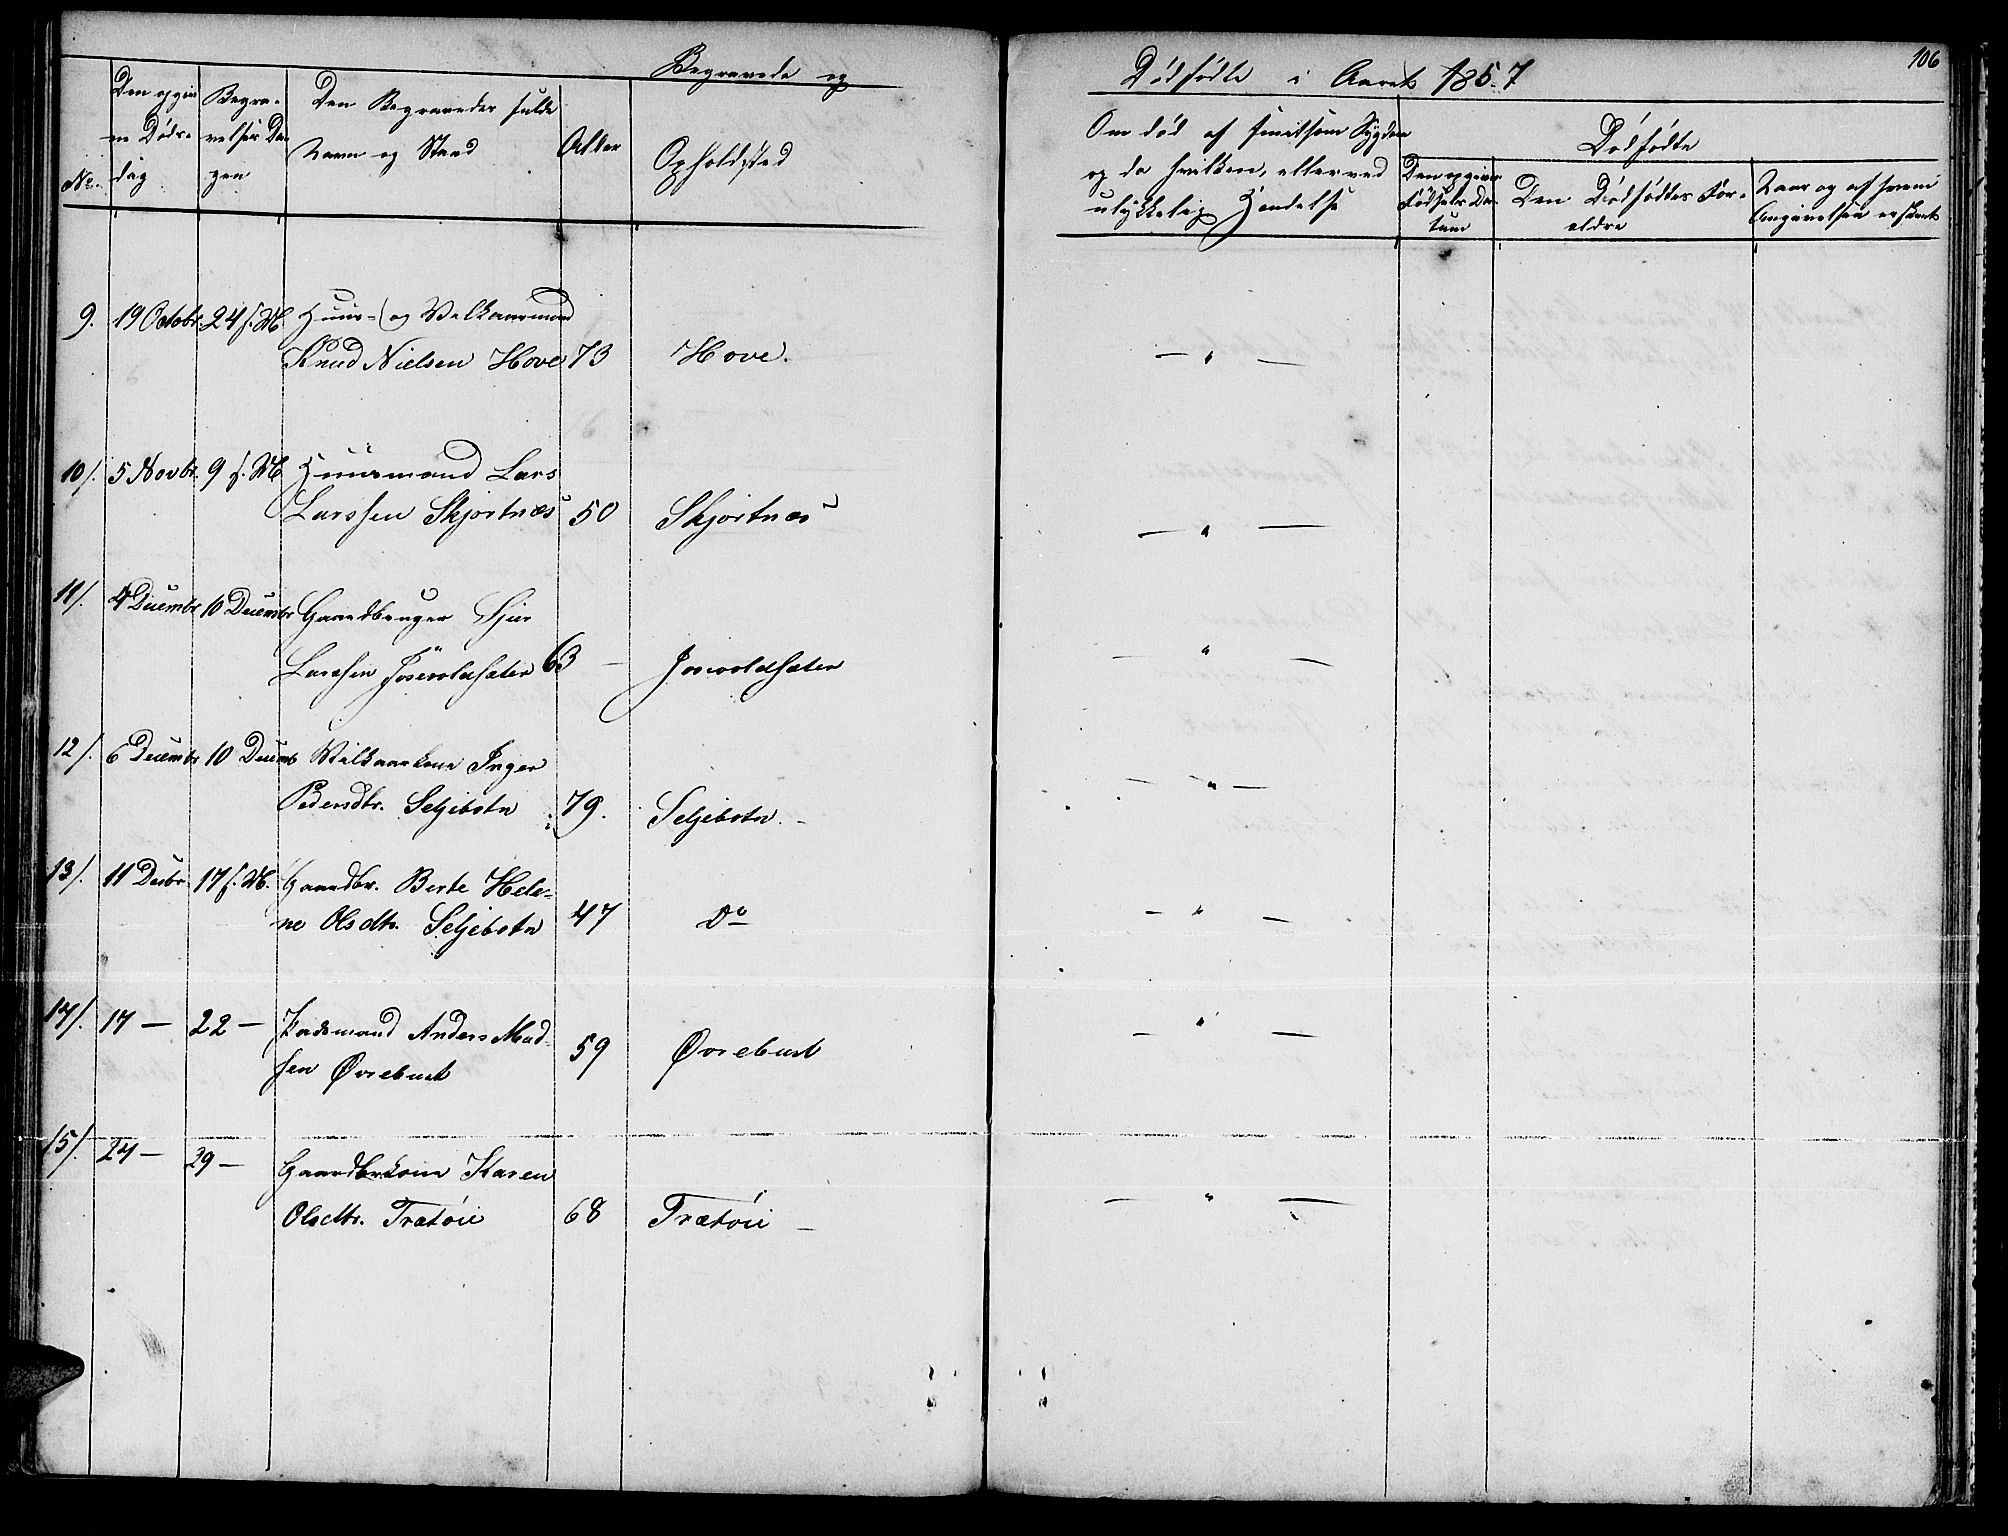 Begravede og
Dødfødte i Aaret 1857
106
No.
Den opgiv
ne Døds-
dag
Begra-
velses Da-
gen
Den Begravedes fulde
Navn og Stand
Alder
Opholdssted
Om død af smitsom Sygdom
og da hvilken, eller ved
ulykkelig Hændelse
Dødfødte
Den opgivne
Fødsels Da-
tum
Den Dødfødtes For-
ældre
Naar og af hvem
Angivelsen er skeet
9. 19 Octobr. 24 s. M. Huus- og Vilkaarsmand
Knud Nielsen Hove 73 Hove. — " —
10/. 5 Novbr. 9 s. M. Huusmand Lars
Larssen Skjortnæs 50 Skjortnæs — " —
11/. 4 Decembr 10 Decembr Gaardbruger Sjur
Larssen Josevoldsæter 63 — Josevoldsæter — " —
12/. 6 Decembr 10 Decemb Vilkaarkone Inger
Pedersdtr. Seljebotn 79. Seljebotn. — " —
13/. 11 Decbr. 17 s. M. Gaardbr. Berte Hele-
ne Olsdtr. Seljebotn 47 Do — " —
14/. 17 — 22 — Pladsmand Anders Mad-
sen Øvrebust 59 Øvrebust — " —
15/. 24 — 29 — Gaardbrkone Karen
Olsdtr. Trætøie 68 Trætøie — — " —